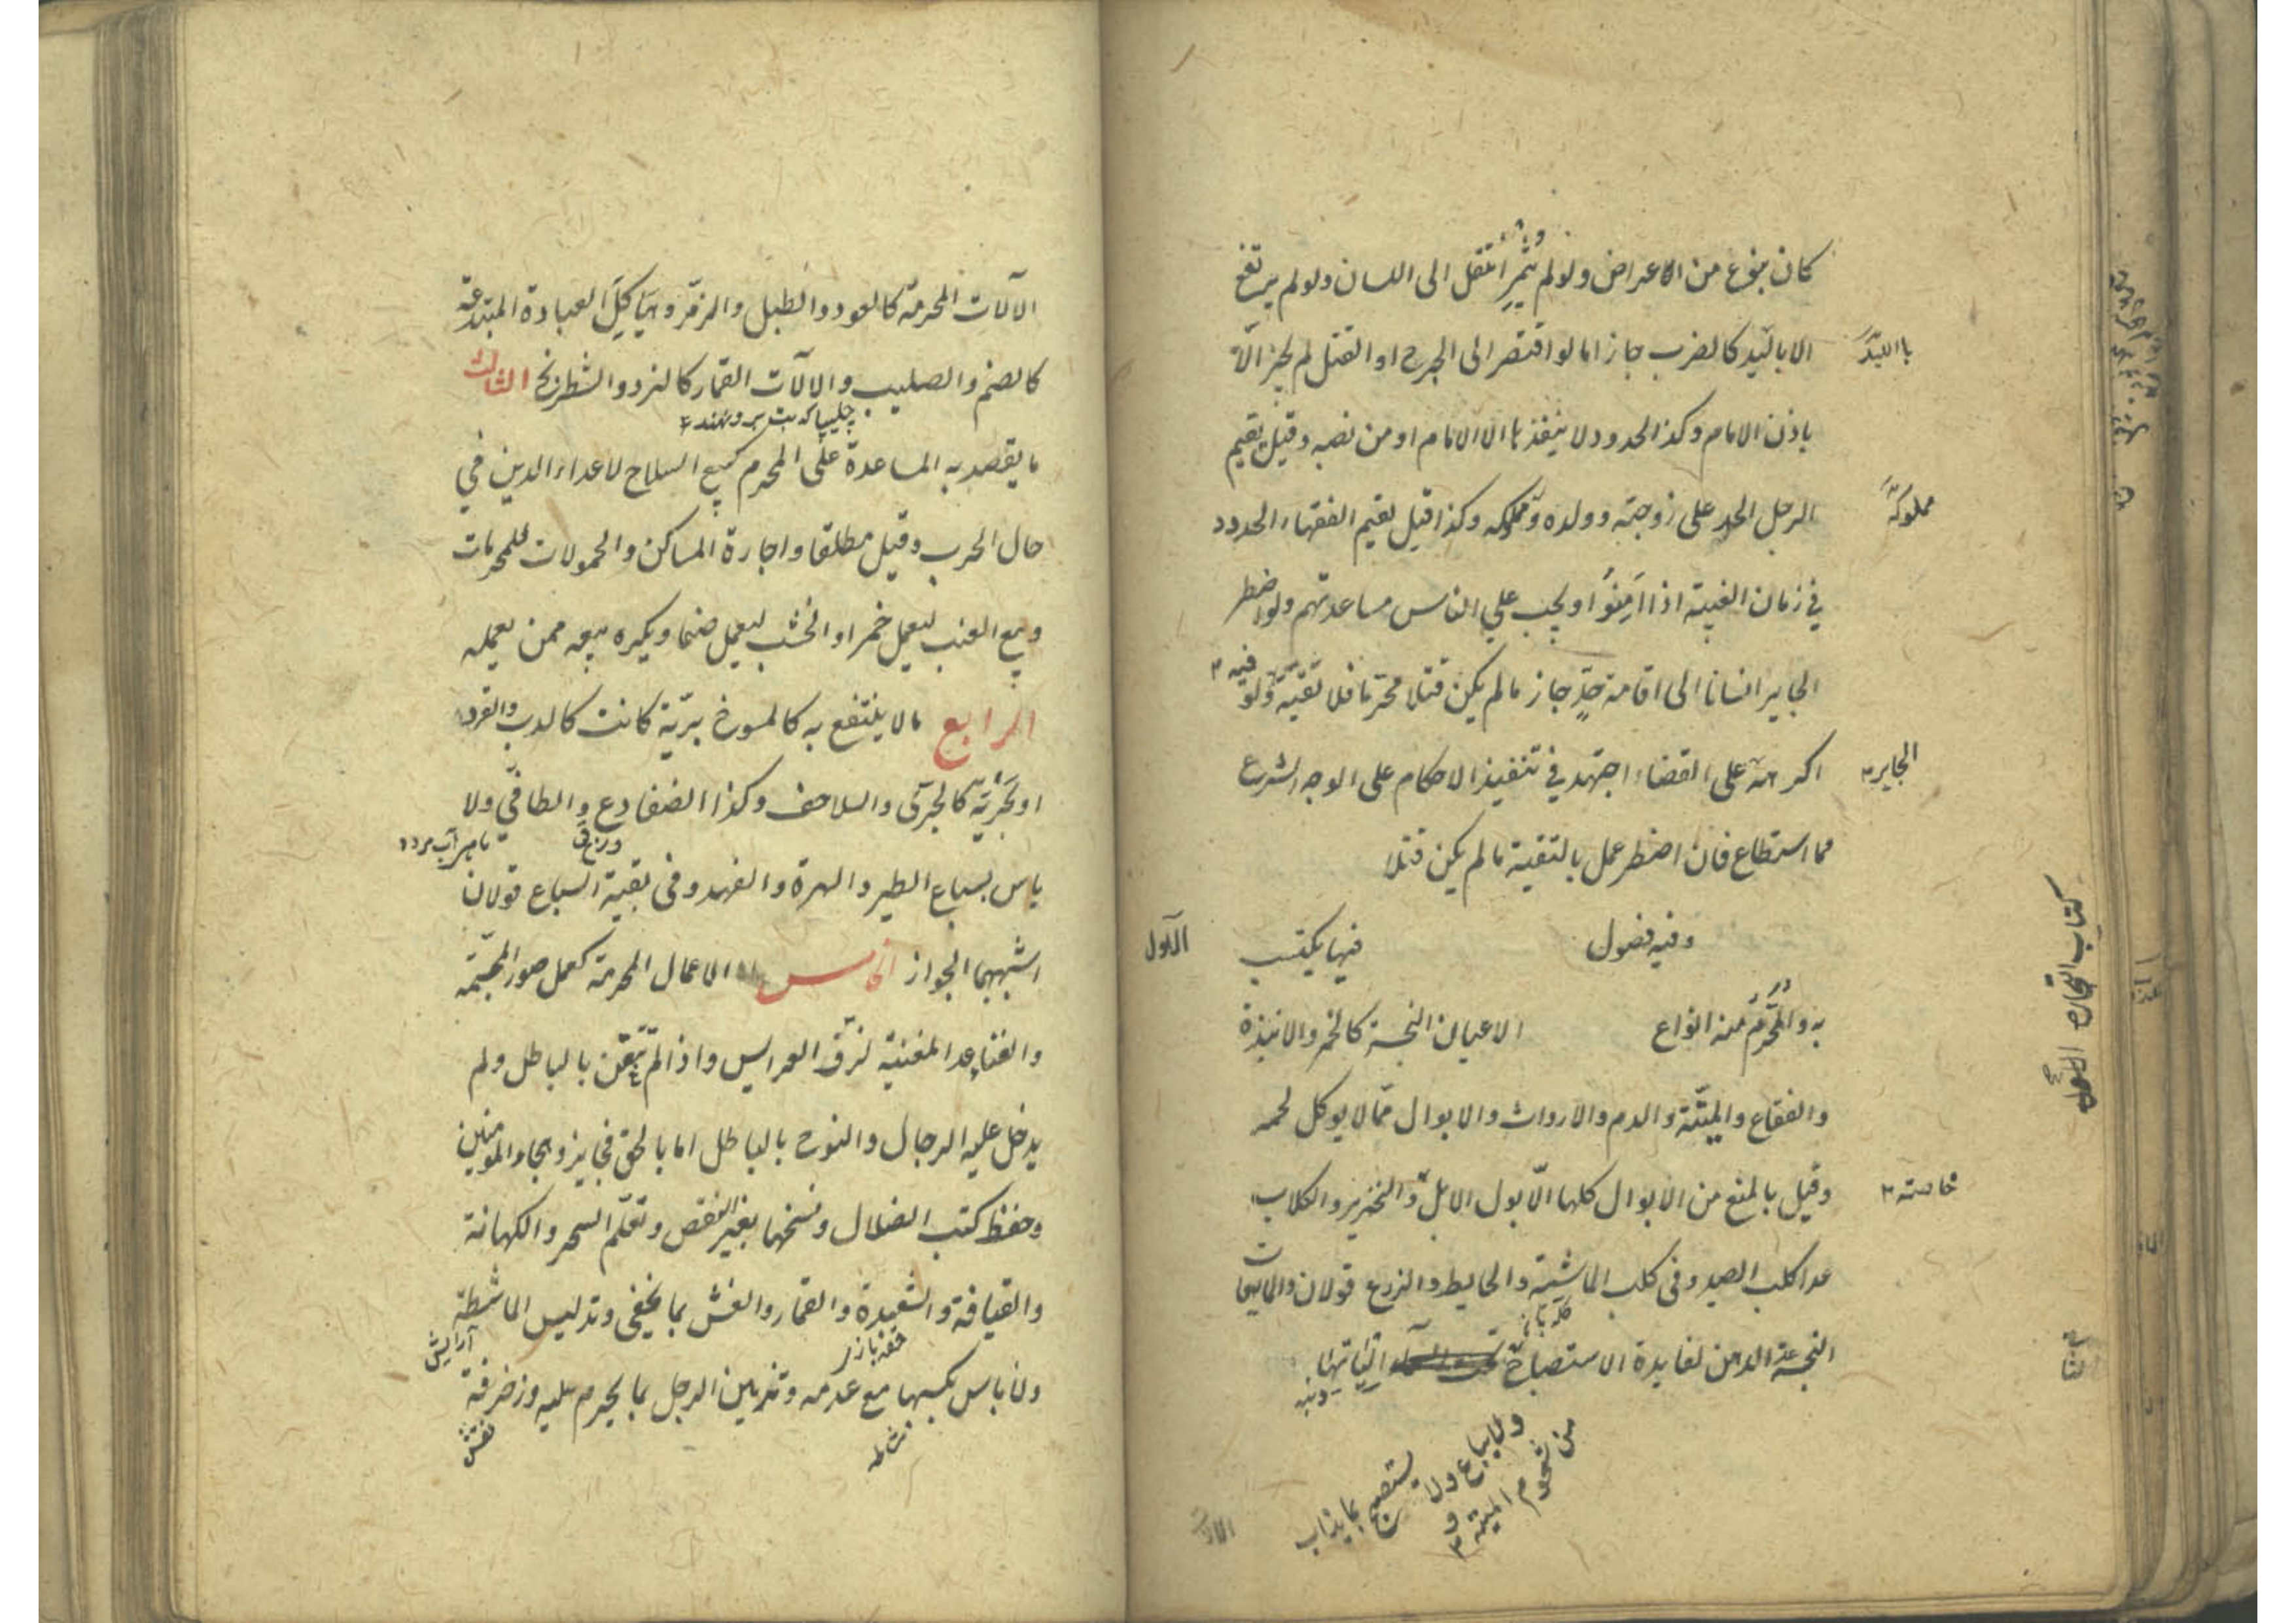 كان بنوع من الاعراض ولو لم يثمر انتقل الى اللسان ولو لم يرتفع
الا باليد كالضرب جاز اما لو افتقر الى الجرح او القتل لم يجز الّا
بااليَد
باذن الامام وكذا الحدود لا ينفذها الا الامام او من نصبه وقيل يقيم
الرجل الحد على زوجته وولده ومملوكه وكذا قيل يقيم الفقهاء الحدود
مملوكه
في زمان الغيبة اذا اَمِنُوا ويجب علي الناس مساعدتهم ولو اضطر
الجاير انسانا الى اقامة حدٍّ جاز ما لم يكن قتلا محرّما فلا تقيّة فيه ولو
اكرهه على القضاء اجتهد في تنفيذ الاحكام على الوجه الشرع
الجاير
مما استطاع فان اضطر عمل بالتقية ما لم يكن قتلا
كتاب التجارة
وفيه فصول
الاول
فيما يكتسب
به والمُحَرَّم منه انواع
الاعيان النجسة كالخمر والانبذة
والفقاع والميتة والدم والارواث والابوال ممّا لا يوكل لحمه
وقيل بالمنع من الابوال كلها الّا بول الابل والخنزير والكلاب
خاصته
عدا كلب الصيد وفى كلب الماشية والحايط والزرع قولان والمايعات
النجسة عدا الدهن لفايدة الاستصباح
ولا يباع ولا يستصبح بما يذاب
من شحوم الميتة و
الآلات المحرمة كالعود والطبل والزمر وهَيَاكِلَ العبادة المبتدعة
كالصنم والصليب والآلات القمار كالنرد والشطرنج الثالث
ما يقصد به المساعدة على المحرم كبيع السلاح لاعداء الدين في
حال الحرب وقيل مطلقا واجارة المساكن والحمولات للمحرمات
وبيع العنب ليعمل خمرا والخشب ليعمل صنما ويكره بيعه ممن يعمله
الرابع ما لا ينتفع به كالمسوخ برّية كانت كالدب والقرد
او بَحْرِيّة كالجرّى والسلاحف وكذا الضفادع والطافي ولا
باس بسباع الطير والهرة والفهد وفى بقية السباع قولان
اشبههما الجواز الخامس الاعمال المحرمة كعمل صور المجسّمة
والغناء عدا المغنية لزفّ العرايس واذا لم تتغنّ بالباطل ولم
يدخل عليه الرجال والنوح بالباطل اما بالحق فجايز وهجاء المومنين
وحفظ كتب الضلال ونسخها بغير النقض وتعلّم السحر والكهانة
والقيافة والشعبدة والقمار والغش بما يخفى وتدليس الماشطة
آرايش
حقه بازى
ولا باس بكسبها مع عدمه وتزيين الرجل بما يحرم عليه وزخرفة
نقش